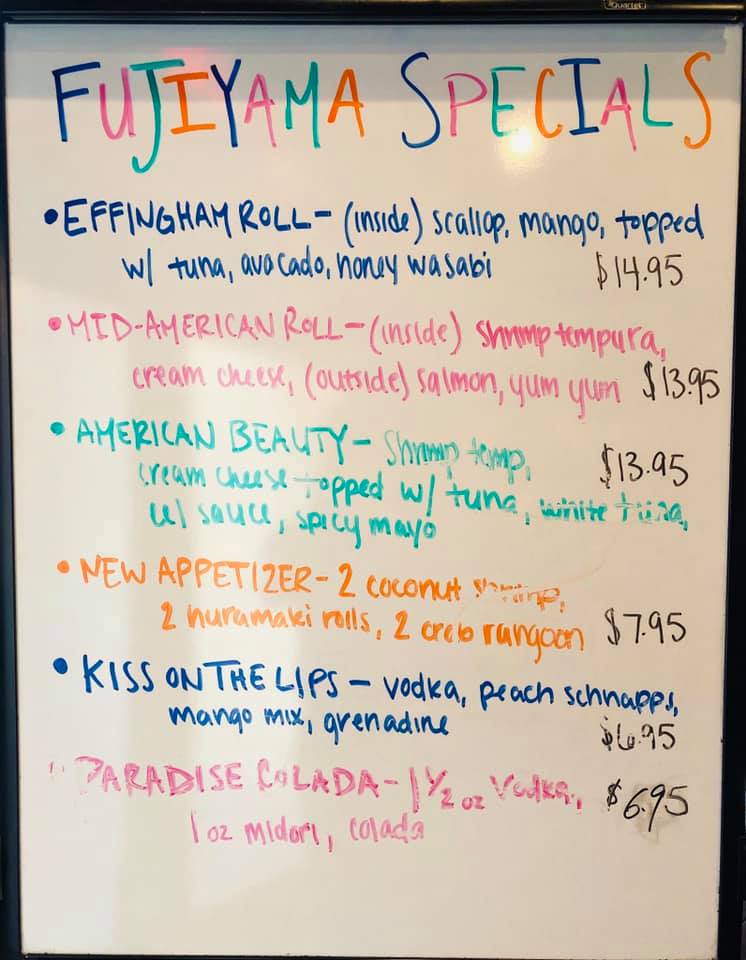 Quartet
FUJIYAMA SPECIALS
• EFFINGHAM ROLL - (inside) scallop, mango, topped
w/ tuna, avocado, honey wasabi $14.95
• MID-AMERICAN ROLL - (inside) shrimp tempura,
cream cheese, (outside) salmon, yum yum $13.95
• AMERICAN BEAUTY - Shrimp temp, $13.95
cream cheese topped w/ tuna, white tuna,
w/ sauce, spicy mayo
• NEW APPETIZER - 2 coconut shrimp,
2 huramaki rolls, 2 crab rangoon $7.95
• KISS ON THE LIPS - vodka, peach schnapps,
mango mix, grenadine $6.95
PARADISE COLADA - 1 1/2 oz Vodka, $6.95
1 oz midori, colada